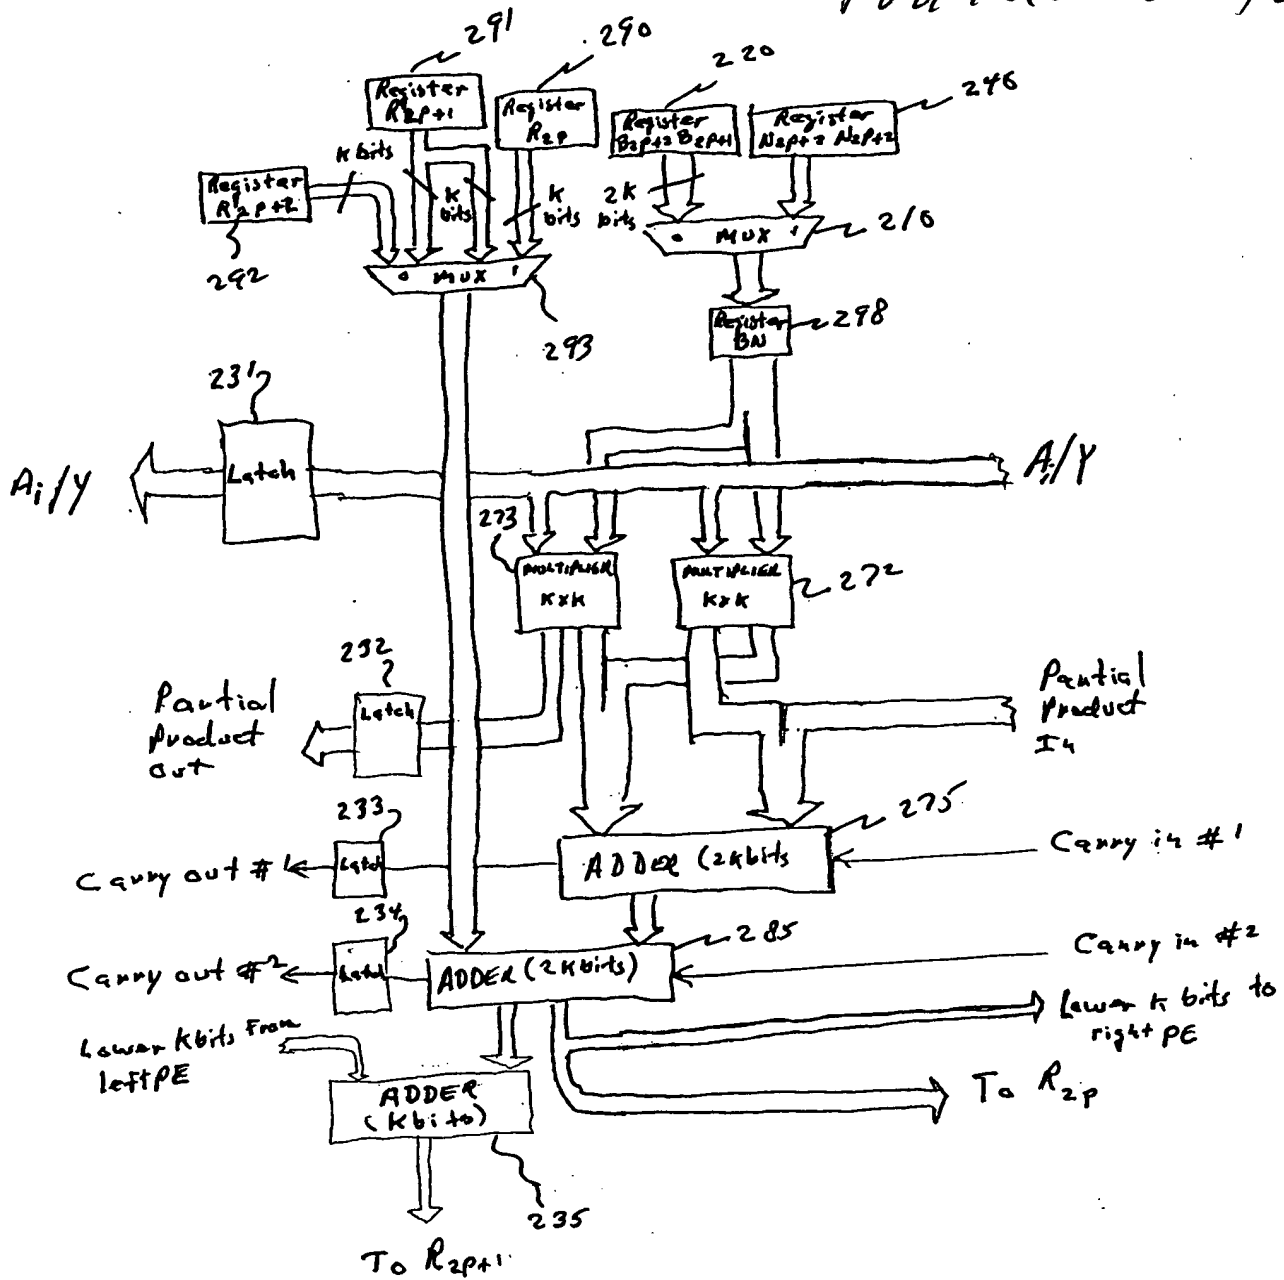 291
290
220
246
Register
R2p+1
Register
R2p
Register
B2p+2 B2p+1
Register
N2p+3 N2p+2
K bits
Register
R2p+2
292
K
bits
K
bits
2K
bits
0 MUX 1
293
0 MUX 1
210
Register
BN
298
231
Latch
Ai/Y
Ai/Y
273
MULTIPLIER
KxK
MULTIPLIER
KxK
272
232
Latch
Partial
Product
out
Partial
Product
In
275
233
Latch
Carry out #1
ADDER (2Kbits
Carry in #1
234
Latch
Carry out #2
ADDER (2Kbits)
285
Carry in #2
Lower Kbits From
left PE
Lower K bits to
right PE
ADDER
(Kbits)
To R2p
235
To R2p+1